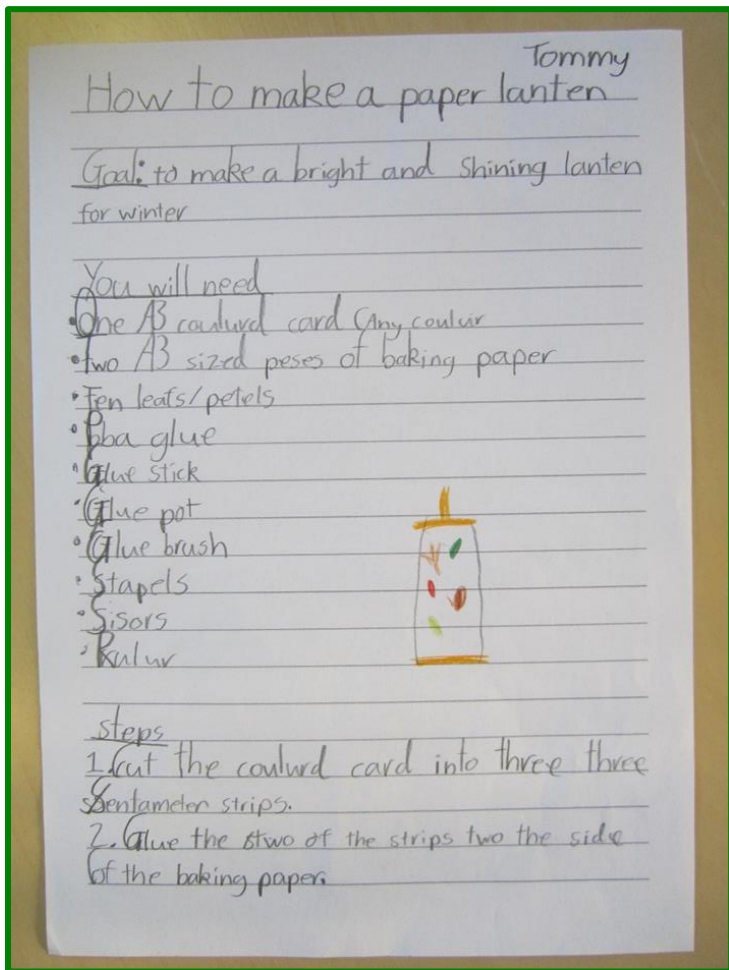 Tommy
How to make a paper lanten
Goal: to make a bright and shining lanten
for winter
You will need
•One A3 coulurd card (Any couluir
•two A3 sized peses of baking paper
•Ten leafs/petels
•Pba glue
•Glue stick
•Glue pot
•Glue brush
•Stapels
•Sisors
•Rulur
steps
1.Cut the coulurd card into three three
Sentameter strips.
2. Glue the two of the strips two the side
of the baking paper.